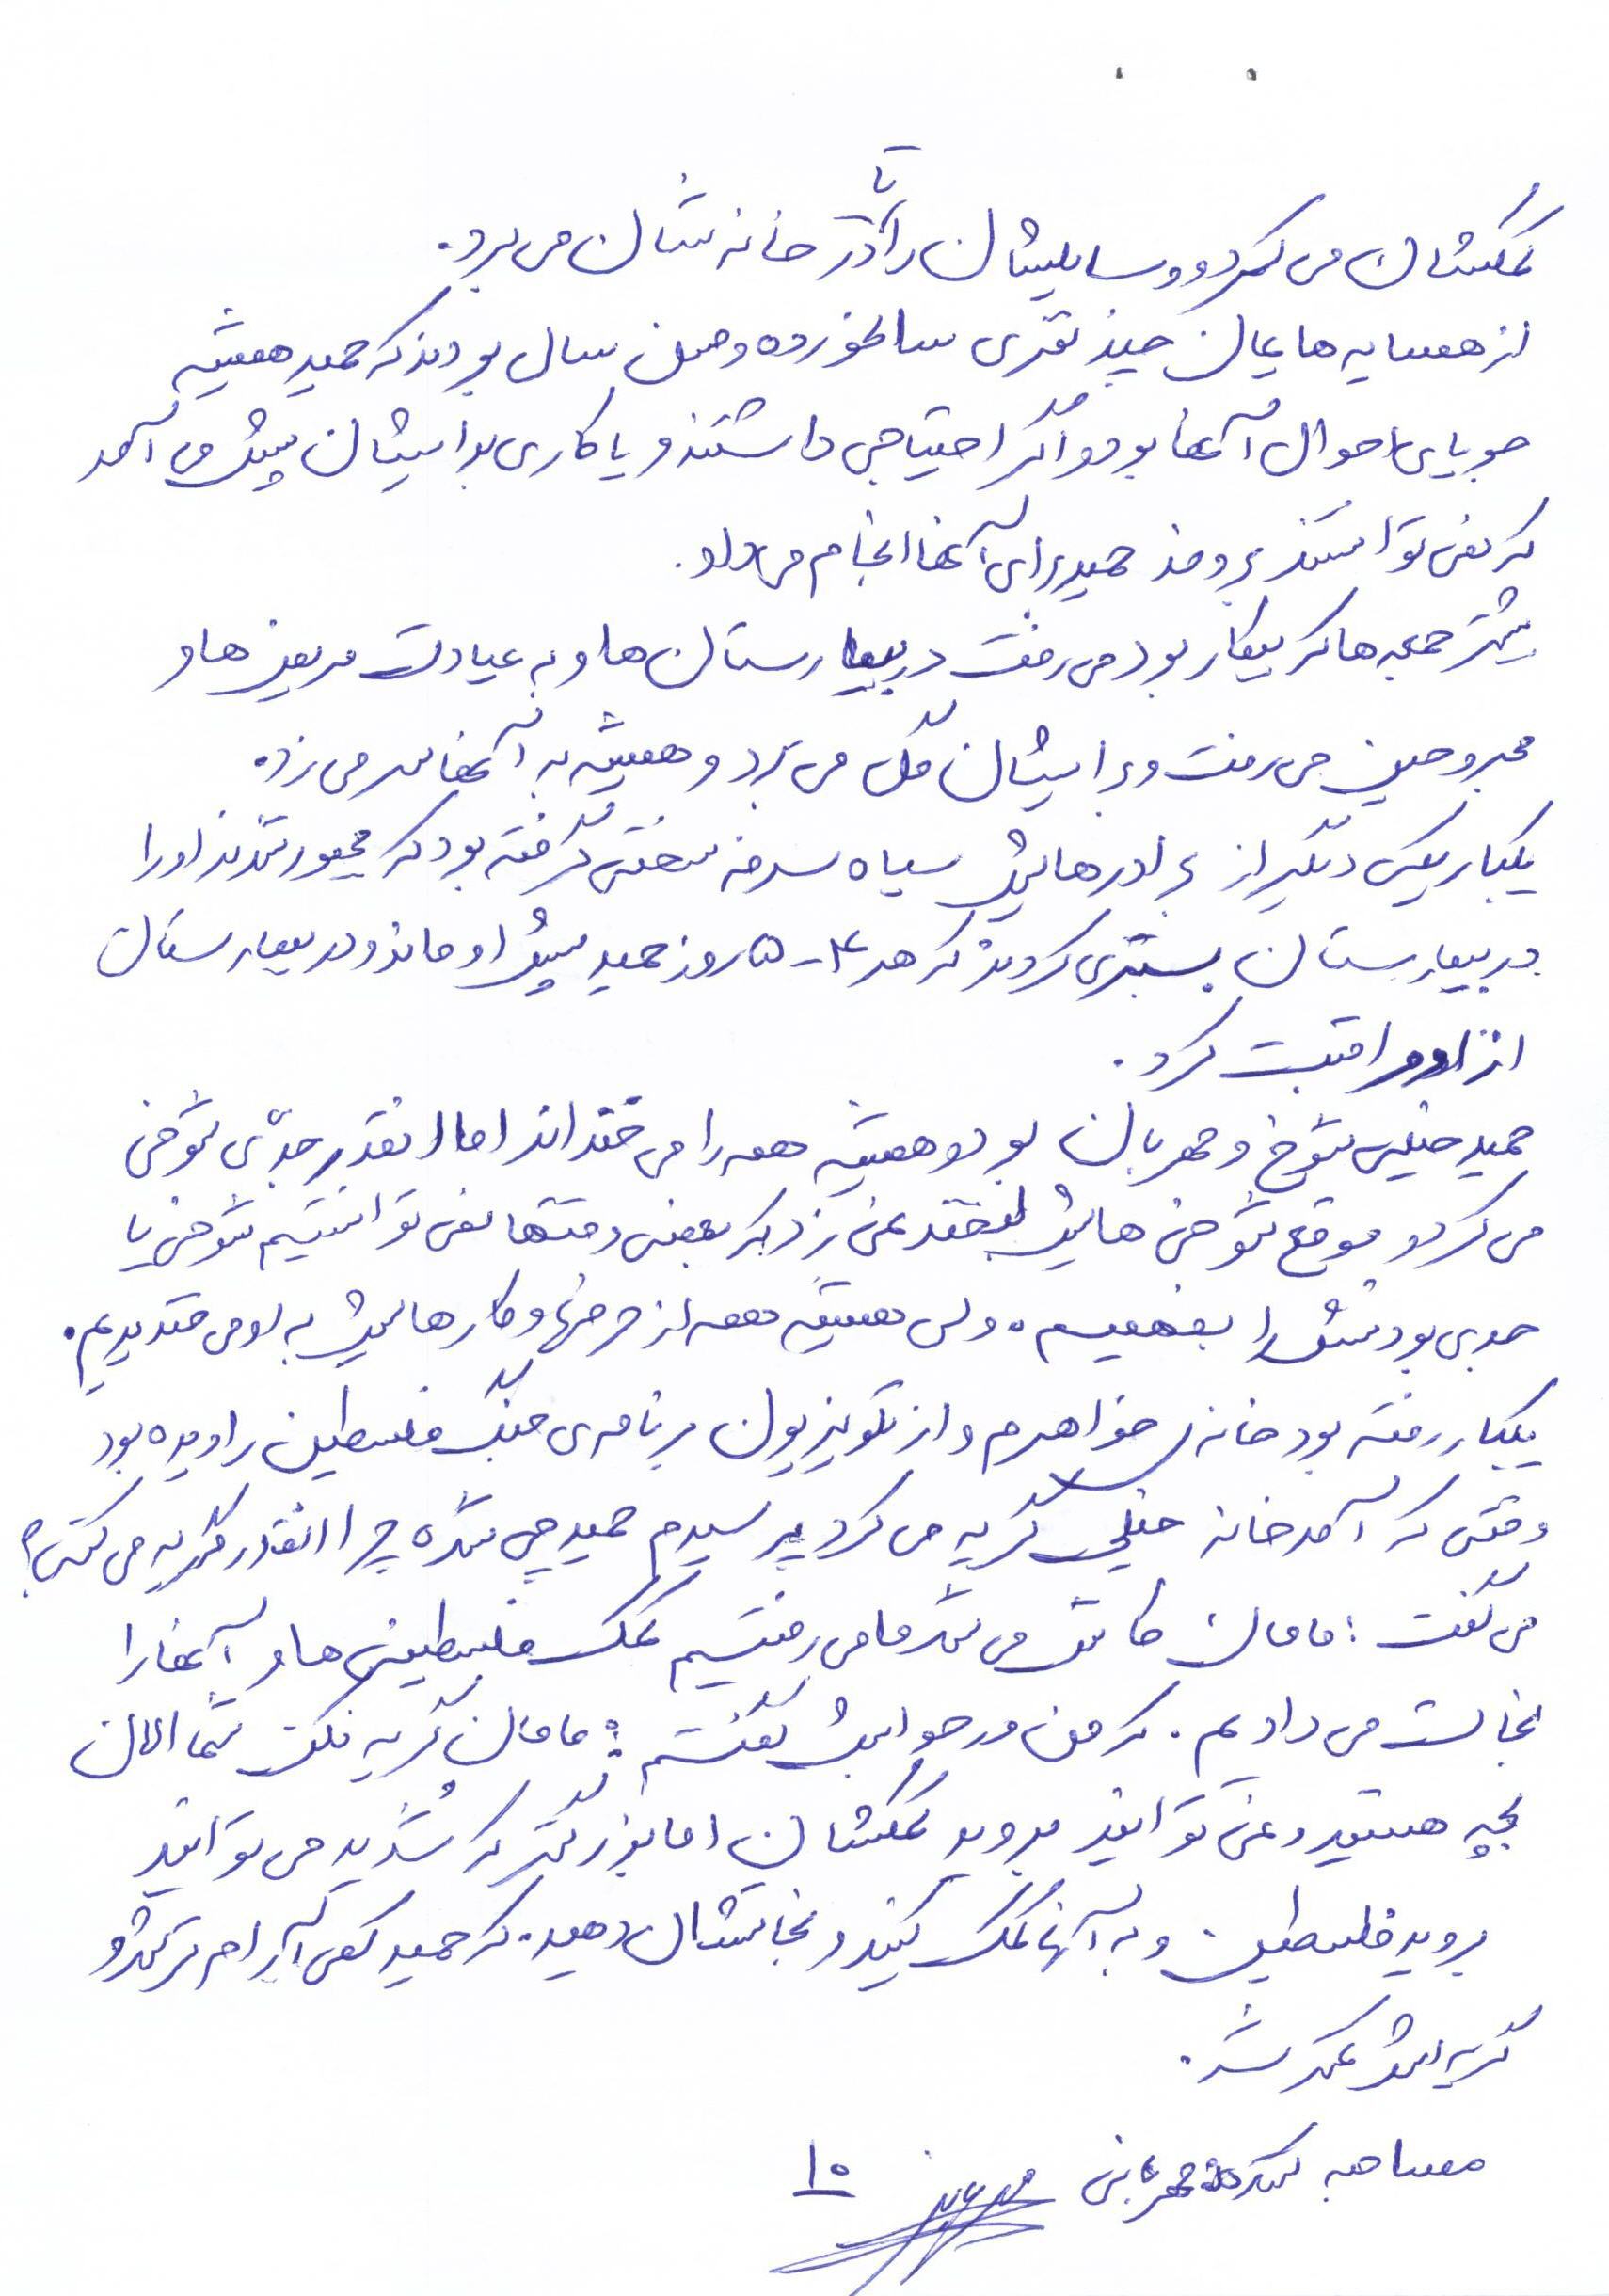 کمکشان می کرد و وسایلشان را تا در خانه شان می برد.
از همسایه هایمان چند نفری سالخورده و مسن سال بودند که حمید همیشه
جویای احوال آنها بود و اگر احتیاجی داشتند و یا کاری برایشان پیش می آمد
که نمی توانستند بروند حمید برای آنها انجام می داد.
بیشتر جمعه ها که بیکار بود می رفت در بیمارستان ها و به عیادت مریض ها و
مجروحین می رفت و برایشان گل می برد و همیشه به آنها سر می زد.
یکبار یکی دیگر از برادرهایش سیاه سرفه سختی گرفته بود که مجبور شدند او را
در بیمارستان بستری کردند که هر ۴-۵ روز حمید پیش او ماند و در بیمارستان
از او مراقبت کرد.
حمید خیلی شوخ و مهربان بود و همیشه همه را می خنداند اما انقدر جدّی شوخی
می کرد و موقع شوخی هایش لبخند نمی زد که بعضی وقتها نمی توانستیم شوخی یا
جدی بودنش را بفهمیم. ولی همیشه همه از حرفها و کارهایش به او می خندیدیم.
یکبار رفته بود خانه خواهرم و از تلویزیون برنامه ی جنگ فلسطین را دیده بود
وقتی که آمد خانه خیلی گریه می کرد پرسیدم حمید چی شده چرا انقدر گریه می کنی؟
می گفت: مامان کاش می شد ما می رفتیم کمک فلسطینی ها و آنها را
نجات می دادیم. که من در جوابش گفتم: مامان گریه نکن شما الان
بچه هستید و نمی توانید بروید کمکشان اما بزرگتر که شدید می توانید
بروید فلسطین و به آنها کمک کنید و نجاتشان دهید. که حمید کمی آرام تر شد و
گریه اش کمتر شد.
مصاحبه کننده مهربانی
۱۰